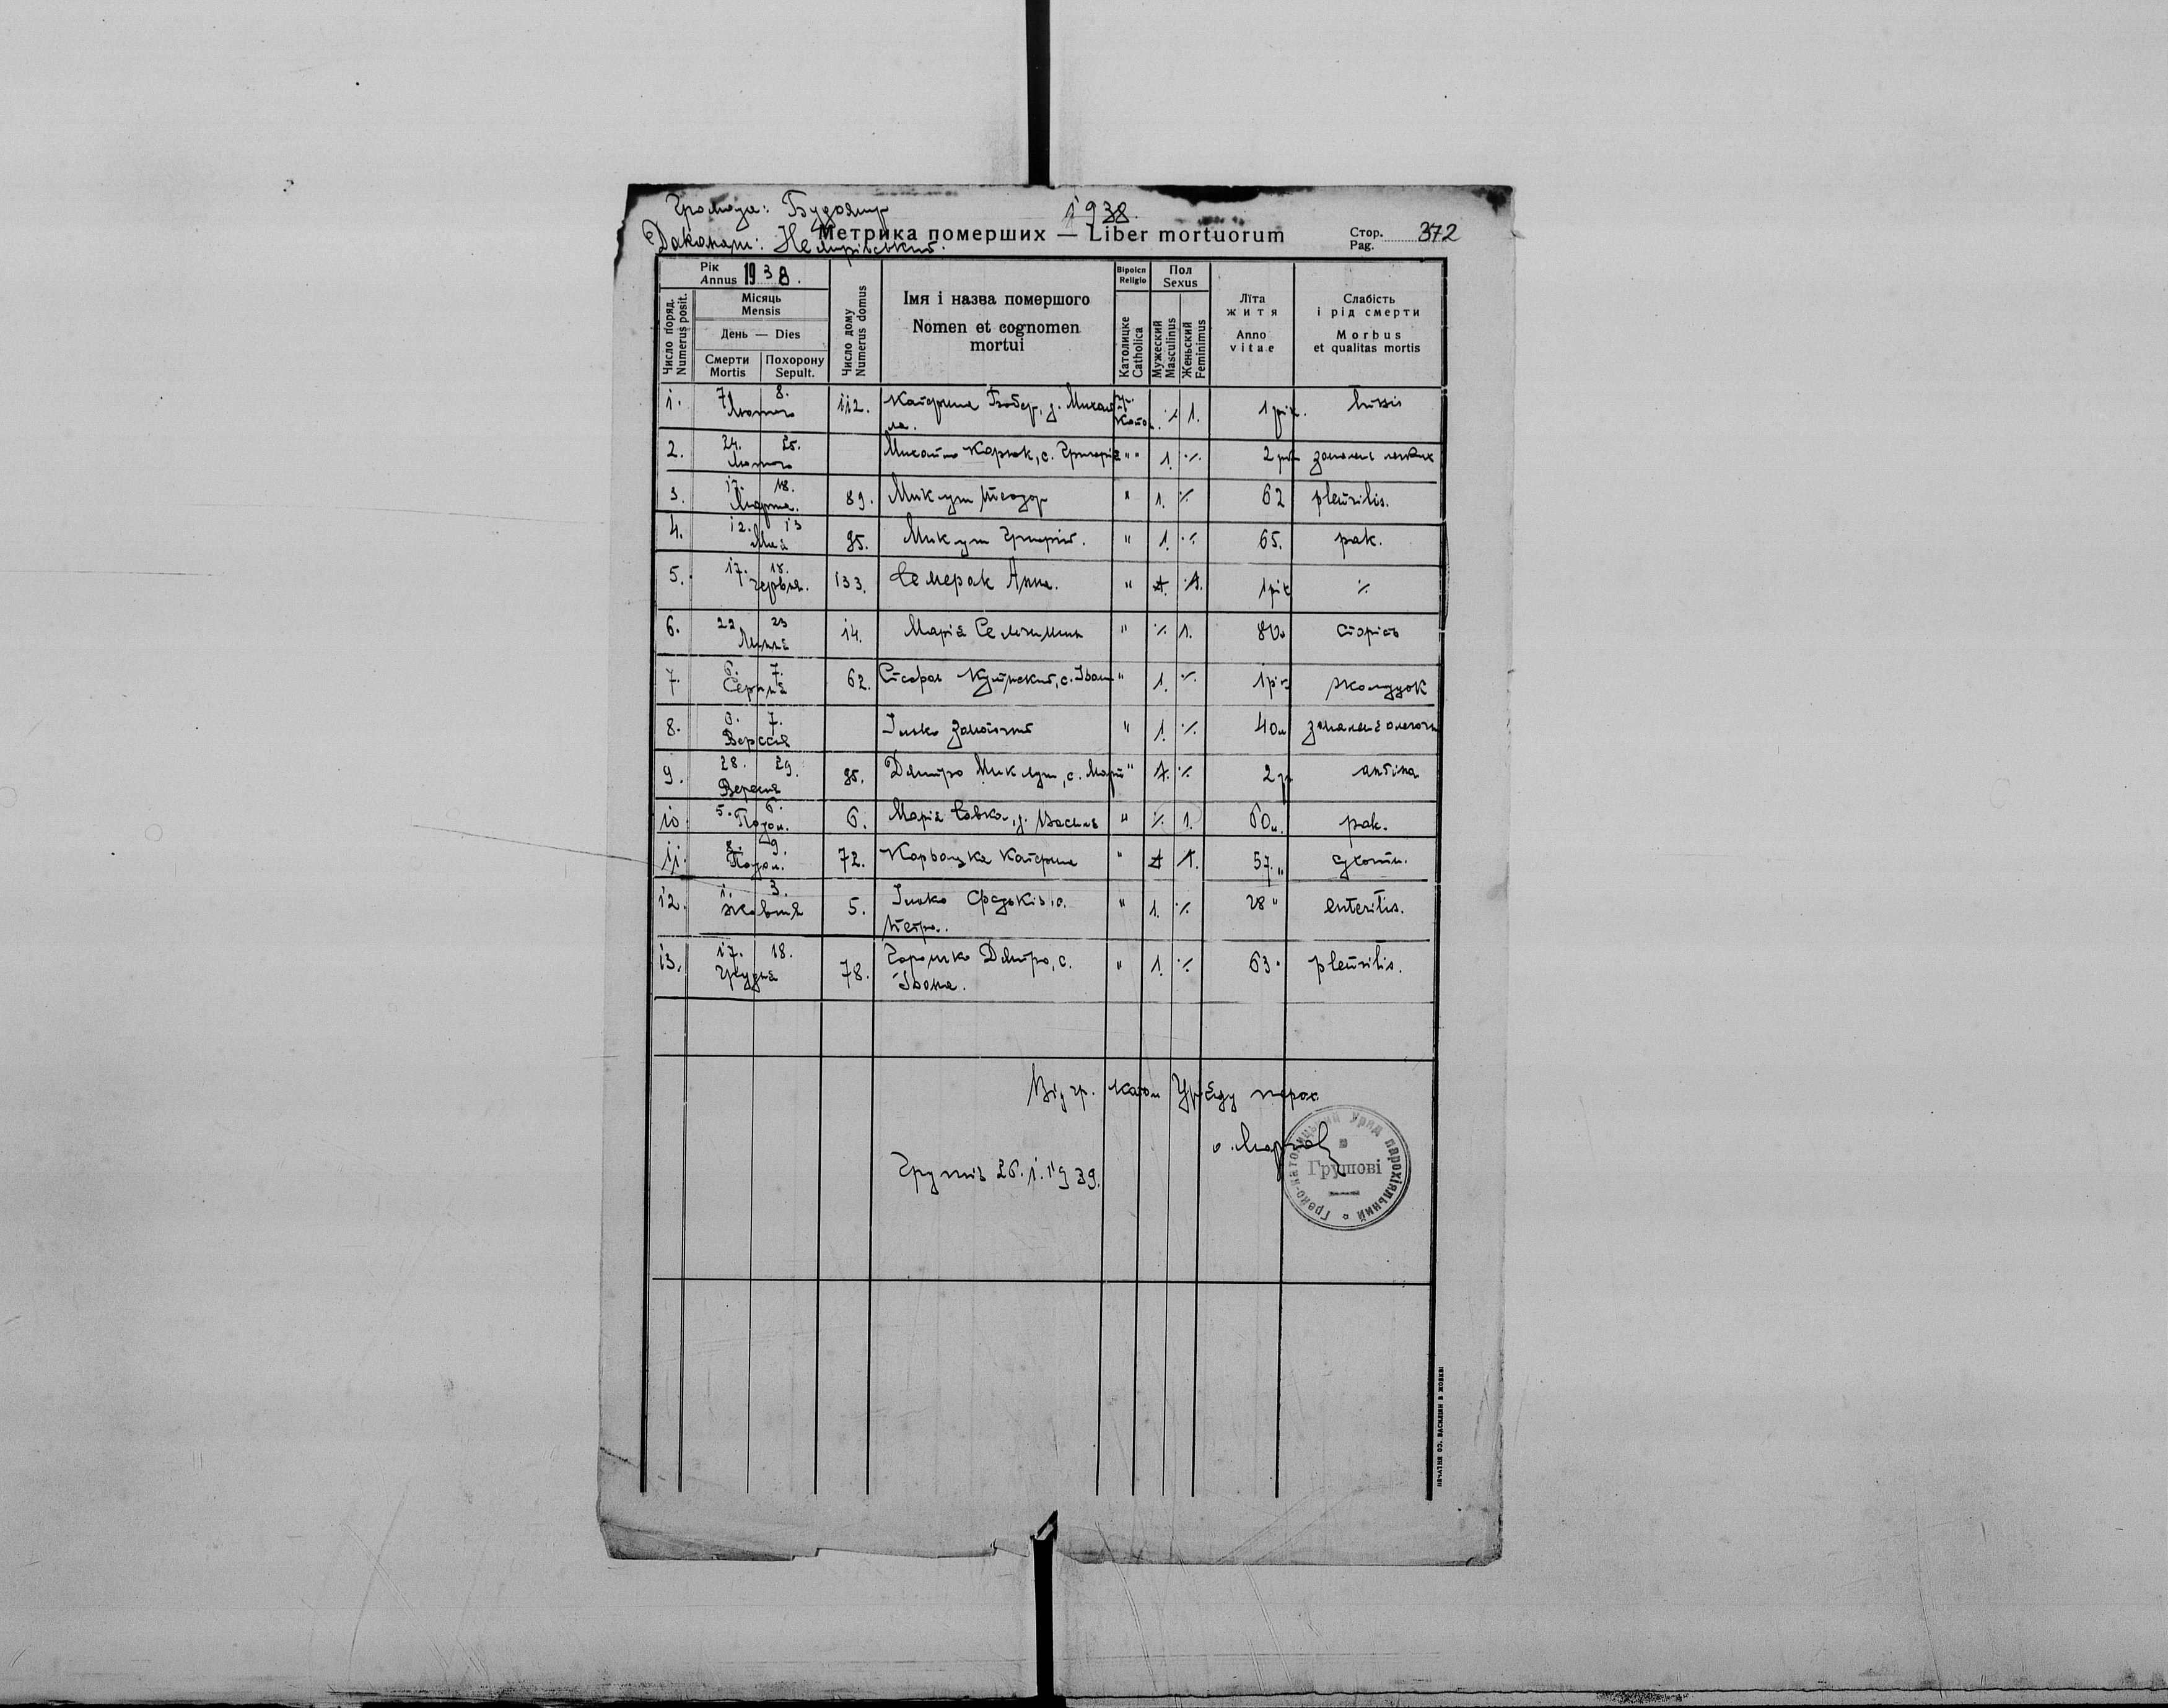 Громада: Будомир 1938.
Деканат: Немирівський.
Метрика померших — Liber mortuorum Стор. Pag. 372
Рік Annus 1938.
Число поряд. Numerus posit.
Місяць Mensis
День — Dies
Смерти Mortis
Похорону Sepult.
Число дому Numerus domus
Імя і назва помершого
Nomen et cognomen mortui
Віроісп Religio
Католицке Catholica
Пол Sexus
Мужеский Masculinus
Женьский Feminimus
Лїта житя
Anno vitae
Слабість і рід смерти
Morbus et qualitas mortis
1. 7 8. Лютого 112. Катерина Бобер, д. Михай
ла. гр. кат. ⁒ 1. 1 рік.
2. 24. 25. Лютого Михайло Карпюк, с. Григорія " " 1. ⁒ 2 запаленє легких
3. 17. 18. Марта. 89. Миклуш Теодор " 1. ⁒ 62 pleuritis.
4. 12. 13 Мая 85. Миклуш Григорій. " 1. ⁒ 65. рак.
5. 17. 18. Червня. 133. Семерак Анна. " 1. 1 рік ⁒
6. 22 23 Липня 14. Марія " ⁒ 1. 80 старість
7. 6. 7. Серпня 62. Стефан с. Івана " 1. ⁒ 1 рік жолудок
8. 6. 7. Вересня Ілько " 1. ⁒ 40
9. 28. 29. Вересня 85. Дмитро Миклуш, с. Марії " 1. ⁒ 2 р ангіна
10 5. 6. Падол. 6. Марія Савка, д. Василя " ⁒ 1. 60 л. рак.
11. 8. 9. Падол. 72. Карвацка Катерина " 1. 57 "
12. 1. 3. Жовтня 5. Ілько Федьків с.
Петра. " 1. ⁒ 28 " enteritis.
13. 17. 18. Грудня 78. Горошко Дмитро, с.
Івана. " 1. ⁒ 63 pleuritis.
Від гр. катол Уряду парох
о.
Грушів 26. 1. 1939.
Греко-католицький Уряд парохіяльний
Грушові
ПЕЧАТНЯ ОО. ВАСИЛІЯН В ЖОВКВІ